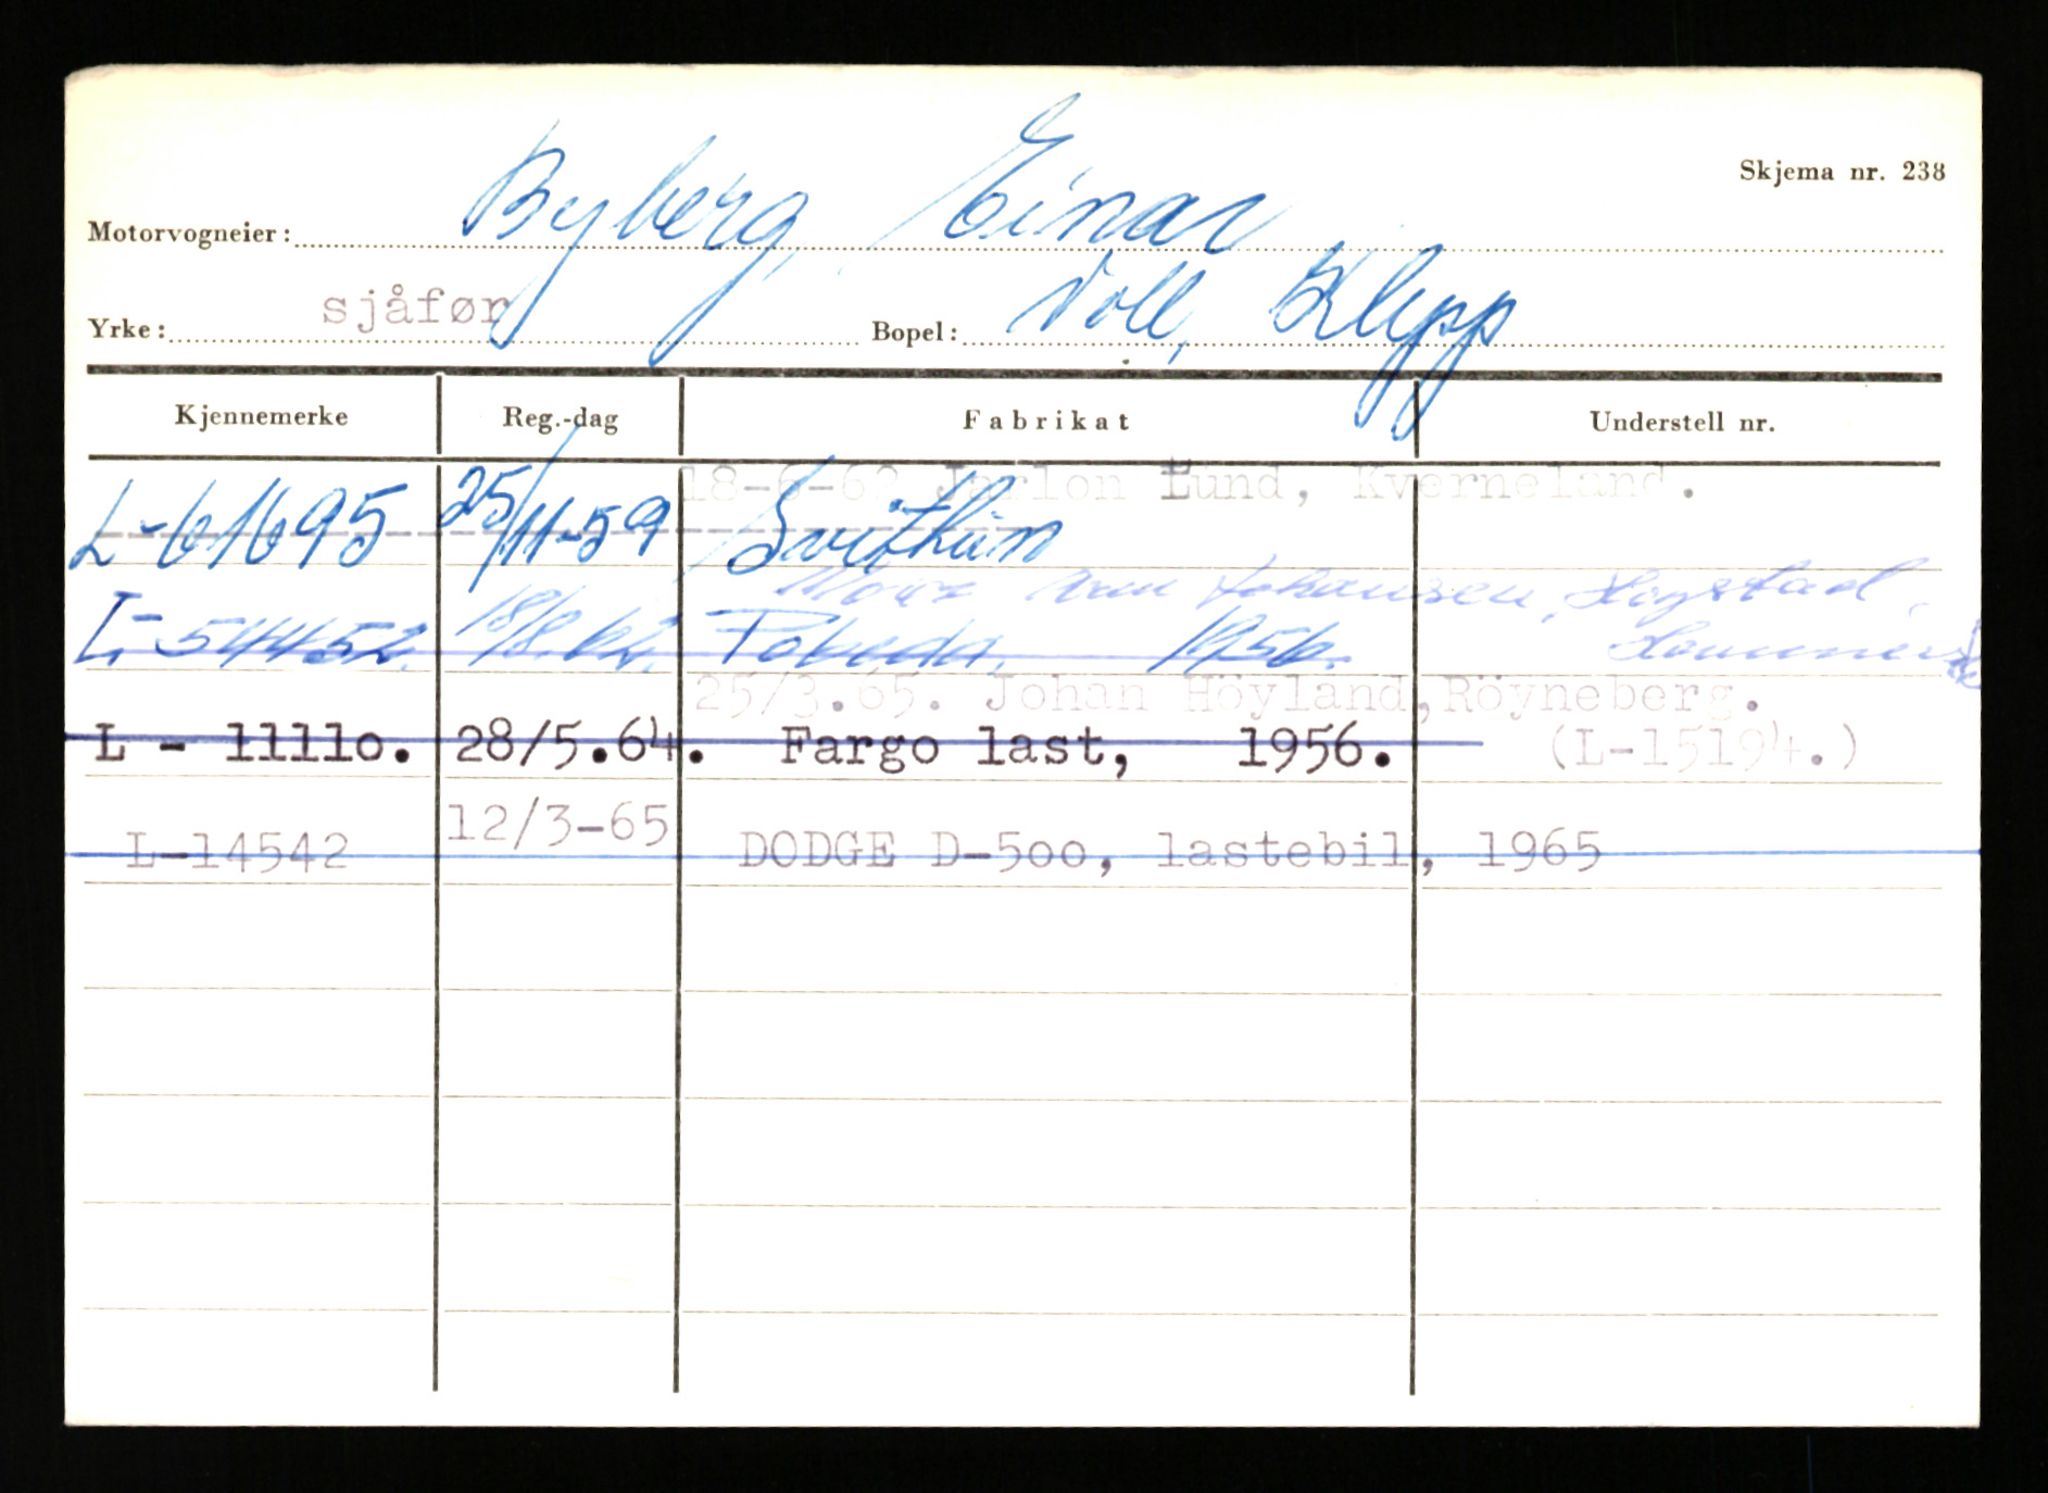 Skjema nr. 238
Motorvogneier: Byberg, Einar
Yrke: sjåfør Bopel: Voll, Klepp
Kjennemerke Reg.-dag Fabrikat Understell nr.
18-6-62 Jarlon Lund, Kverneland.
L-61695 25/11-59 Svithun
Johansen, Hogstad,
L-54452. 18/8.62. Pobeda. 1956.
25/3.65. Johan Höyland, Röyneberg.
L - 11110. 28/5.64. Fargo last, 1956. (L-15194.)
L-14542 12/3-65 DODGE D-500, lastebil, 1965